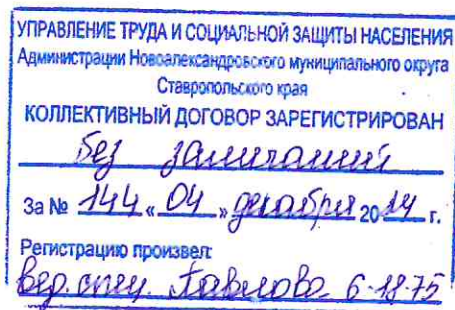 УПРАВЛЕНИЕ ТРУДА И СОЦИАЛЬНОЙ ЗАЩИТЫ НАСЕЛЕНИЯ
Администрации Новоалександровского муниципального округа
Ставропольского края
КОЛЛЕКТИВНЫЙ ДОГОВОР ЗАРЕГИСТРИРОВАН
без замечаний
За № 144 « 04 » декабря 20 г.
Регистрацию произвел:
вед. спец. Павлова 6-18-75